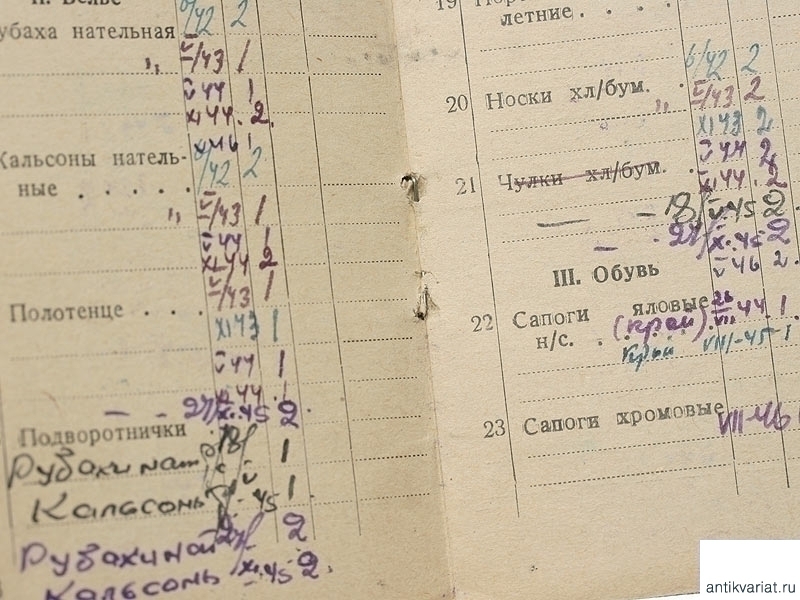 II. Белье
убаха нательная
/42 2
„ V/43 1
V 44 1
XI 44. 2.
XI 46 1
Кальсоны натель-
ные . . . . . /42 2
„ V/43 1
V 44 1
XI-44 2
V/43 1
Полотенце . . .
XI 43 1
V 44 1
XI 44. 1
- - 27/X-45 2.
Подворотнички
Рубахи нат 18/V 1
Кальсоны V-45 1.
Рубахи нат 27/ 2
Кальсоны X-45 2.
19
летние . . . .
6/42 2
20 Носки хл/бум. .
„ V/43 2
XI 43 2
V 44 2
21 Чулки хл/бум. .
XI 44. 2
— - 18/V-45 2
— - 27/X-45 2
V 46 2.
III. Обувь
22 Сапоги яловые
н/с. . (край). 26/VII 44 1.
Край VIII-45-1
23 Сапоги хромовые VII-46 1
antikvariat.ru